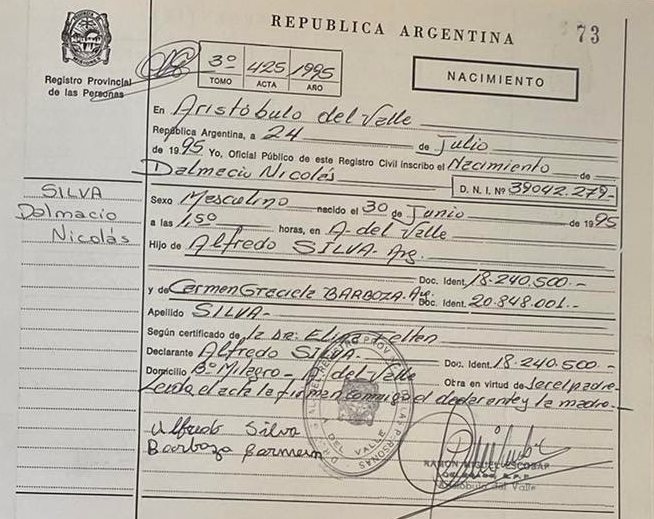 REPUBLICA ARGENTINA
73
Registro Provincial
de las Personas
3º 425 1995
TOMO ACTA AÑO
NACIMIENTO
En Aristóbulo del Valle
República Argentina, a 24 de Julio
de 1995 Yo, Oficial Público de este Registro Civil inscribo el Nacimiento de
Dalmacio Nicolás
D. N. I. Nº 39042.279.-
SILVA
Dalmacio
Nicolás
Sexo Masculino nacido el 30 de Junio de 1995
a las 1,50 horas, en A. del Valle
Hijo de Alfredo SILVA. Arg.
Doc. Ident. 18.240.500.-
y de Carmen Graciela BARBOZA. Arg. Doc. Ident. 20.848.001.-
Apellido SILVA-
Según certificado de la Dr.
Declarante Alfredo SILVA.- Doc. Ident. 18.240.500-
Domicilio Bº Milagro- A. del Valle Otra en virtud de ser el padre-
Leída el acta la firman conmigo el declarante y la madre.-
Alfredo Silva
Barboza Carmen
RAMON MIGUEL ESCOBAR
Aristóbulo del Valle